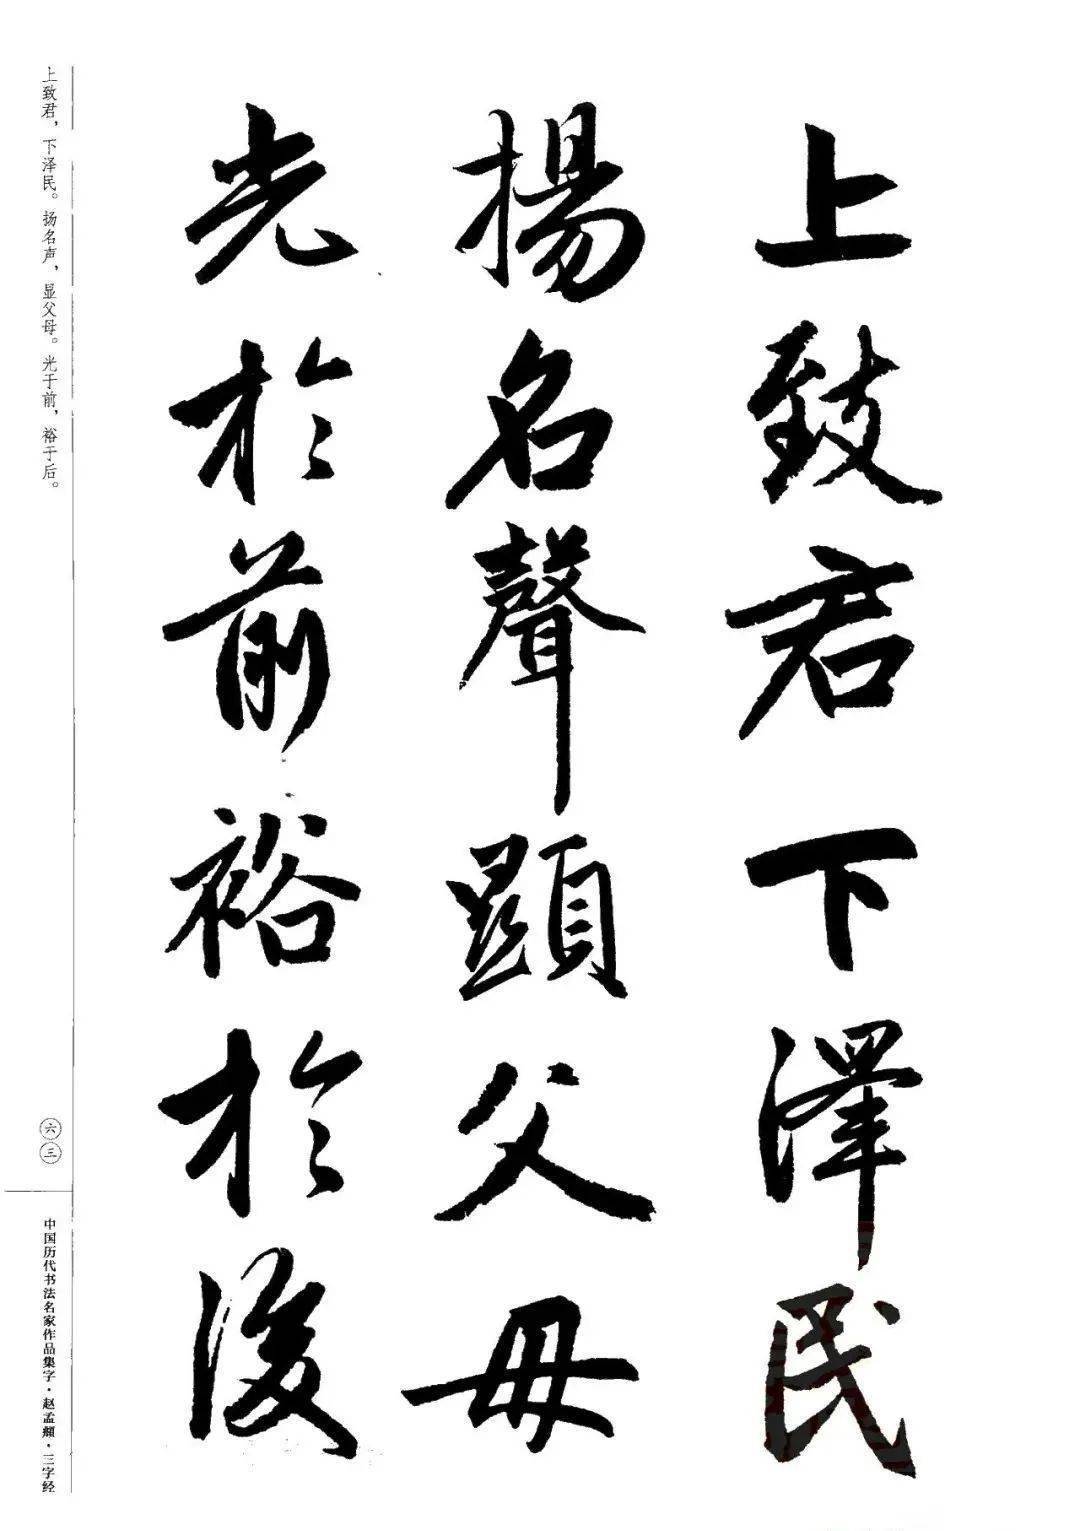 上致君下澤民
揚名聲顯父母
光於前裕於後
上致君，下泽民。扬名声，显父母。光于前，裕于后。
六三
中国历代书法名家作品集字·赵孟頫·三字经